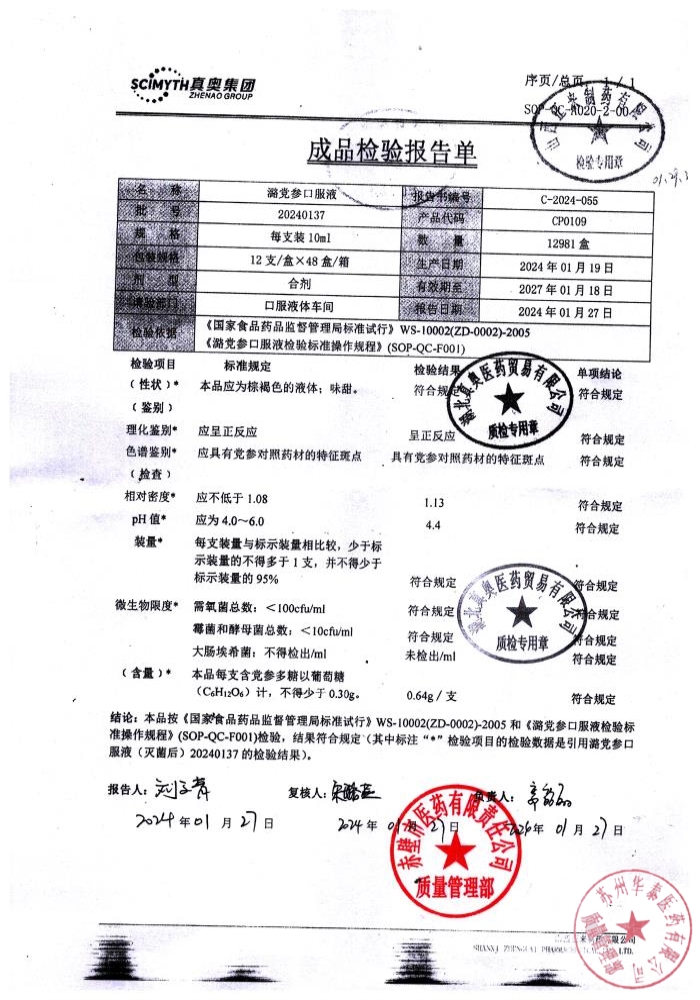 SCIMYTH真奥集团
ZHENAO GROUP
序页/总页 1 / 1
SOP-QC-R020-2-00
检验专用章
成品检验报告单
名 称 潞党参口服液 报告书编号 C-2024-055
批 号 20240137 产品代码 CP0109
规 格 每支装 10ml 数 量 12981 盒
包装规格 12 支/盒×48 盒/箱 生产日期 2024 年 01 月 19 日
剂 型 合剂 有效期至 2027 年 01 月 18 日
请验部门 口服液体车间 报告日期 2024 年 01 月 27 日
检验依据 《国家食品药品监督管理局标准试行》WS-10002(ZD-0002)-2005
《潞党参口服液检验标准操作规程》(SOP-QC-F001)
检验项目 标准规定 检验结果 单项结论
(性状)* 本品应为棕褐色的液体；味甜。 符合规定 符合规定
(鉴别)
理化鉴别* 应呈正反应 呈正反应 符合规定
色谱鉴别* 应具有党参对照药材的特征斑点 具有党参对照药材的特征斑点 符合规定
(检查)
相对密度* 应不低于 1.08 1.13 符合规定
pH 值* 应为 4.0～6.0 4.4 符合规定
装量* 每支装量与标示装量相比较，少于标
示装量的不得多于 1 支，并不得少于
标示装量的 95% 符合规定 符合规定
微生物限度* 需氧菌总数：＜100cfu/ml 符合规定 符合规定
霉菌和酵母菌总数：＜10cfu/ml 符合规定 符合规定
大肠埃希菌：不得检出/ml 未检出/ml 符合规定
(含量)* 本品每支含党参多糖以葡萄糖
(C₆H₁₂O₆) 计，不得少于 0.30g。 0.64g / 支 符合规定
湖北真奥医药贸易有限公司
质检专用章
湖北真奥医药贸易有限公司
质检专用章
结论：本品按《国家食品药品监督管理局标准试行》WS-10002(ZD-0002)-2005 和《潞党参口服液检验标
准操作规程》(SOP-QC-F001)检验，结果符合规定（其中标注“*”检验项目的检验数据是引用潞党参口
服液（灭菌后）20240137 的检验结果）。
报告人： 复核人： 负责人：
2024 年 01 月 27 日 2024 年 01 月 27 日 年 01 月 27 日
赤壁市医药有限责任公司
质量管理部
苏州华泰医药有限公司